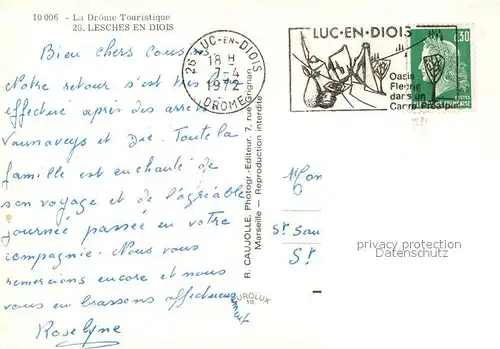 10 006 - La Drôme Touristique
26. LESCHES EN DIOIS
Bien chers Cousins
Notre retour s'est très bien
effectué après des arrets
Vaunaveys et Die. Toute la
famille est enchanté de
son voyage et de l'agréable
journée passée en votre
compagnie. Nous vous
remercions encore et nous
vous embrassons affectueusement
Roselyne
26 LUC-EN-DIOIS
18 H
7-4
1972
(DROME)
LUC-EN-DIOIS
Oasis
Fleurie
dans un
0,30
POSTES
FRANÇAISE
R. CAUJOLLE, Photogr.-Editeur, 7, rue Grignan
Marseille — Reproduction interdite
Mon
St Sau
St
privacy protection
Datenschutz
EUROLUX